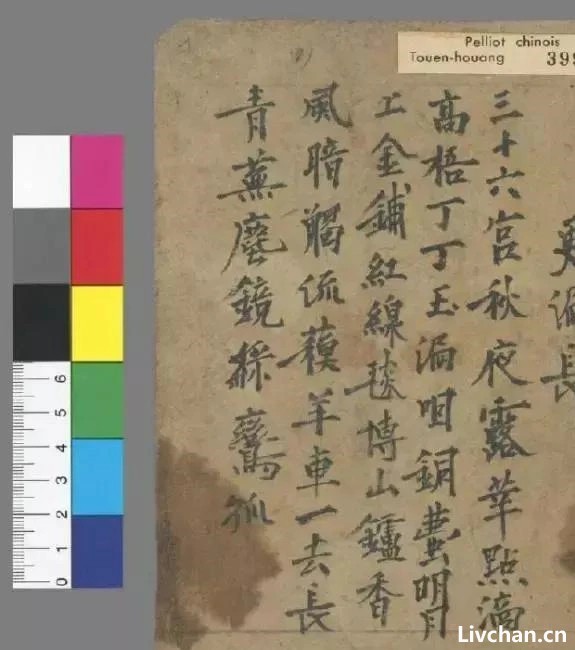 Pelliot chinois
Touen-houang 399
漏長
三十六宮秋夜露華點滴
高梧丁丁玉漏咽銅壺明月
上金鋪紅線毯博山鑪香
風暗觸流蘇羊車一去長
青蕪塵鏡綵鸞孤
6
5
4
3
2
1
0
Livchan.cn